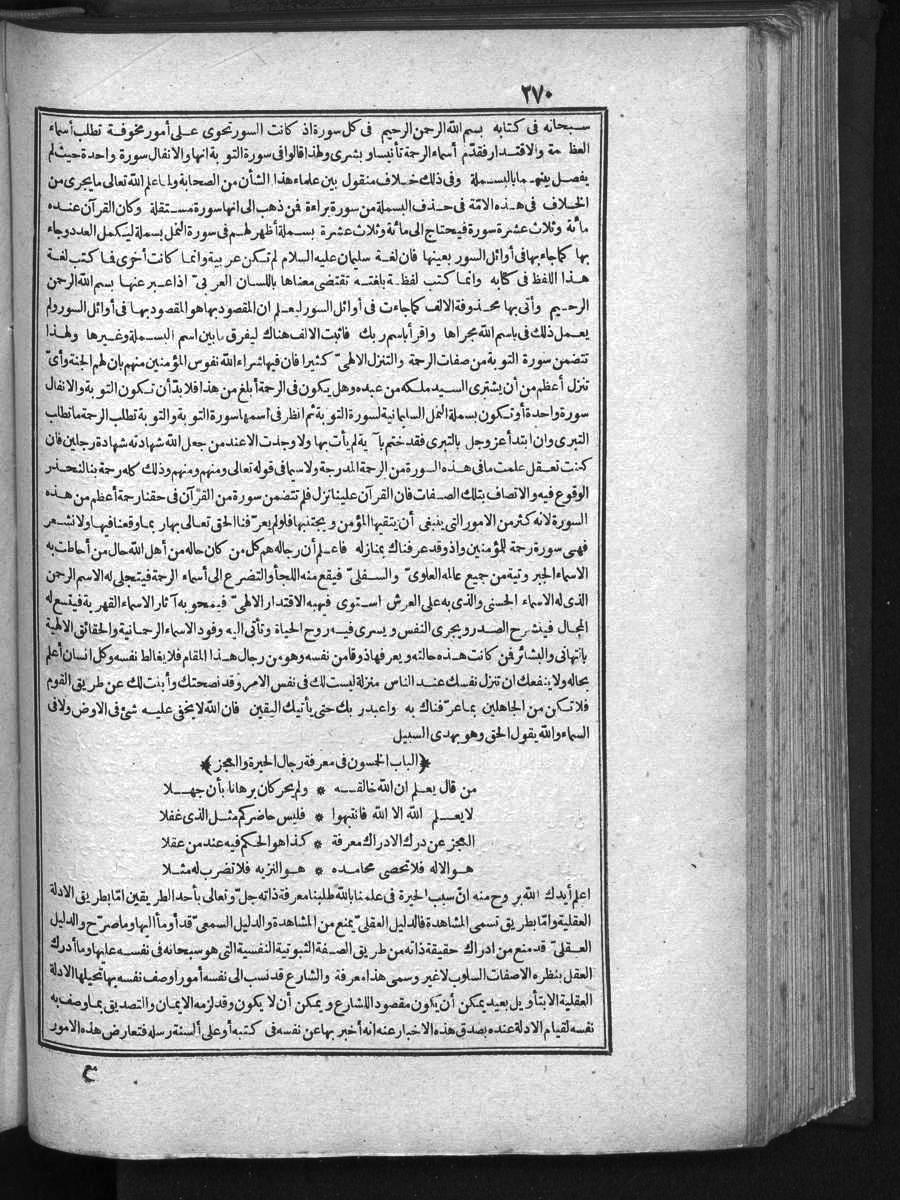 ٢٧٠
سبحانه فى كتابه بسم الله الرحمن الرحيم فى كل سورة اذ كانت السور تحوى على أمور مخوفة تطلب أسماء
العظمة والاقتدار فقدّم أسماء الرحمة تأنيسا وبشرى ولهذا قالوا فى سورة التوبة انها والانفال سورة واحدة حيث لم
يفصل بينهما بالبسملة وفى ذلك خلاف منقول بين علماء هذا الشأن من الصحابة ولما علم الله تعالى ما يجرى من
الخلاف فى هذه الامّة فى حذف البسملة من سورة براءة فمن ذهب الى انها سورة مستقلة وكان القرآن عنده
مائة وثلاث عشرة سورة فيحتاج الى مائة وثلاث عشرة بسملة أظهر لهم فى سورة النمل بسملة ليكمل العدد وجاء
بها كما جاء بها فى أوائل السور بعينها فان لغة سليمان عليه السلام لم تكن عربية وانما كانت أخرى فما كتب لغة
هذا اللفظ فى كتابه وانما كتب لفظة بلغته تقتضى معناها باللسان العربىّ اذا عبر عنها بسم الله الرحمن
الرحيم وأتى بها محذوفة الالف كما جاءت فى أوائل السور ليعلم ان المقصود بها هو المقصود بها فى أوائل السور ولم
يعمل ذلك فى باسم الله مجراها واقرأ باسم ربك فأثبت الالف هناك ليفرق ما بين اسم البسملة وغيرها ولهذا
تتضمن سورة التوبة من صفات الرحمة والتنزل الالهىّ كثيرا فان فيها شراء الله نفوس المؤمنين منهم بان لهم الجنة وأىّ
تنزل أعظم من أن يشترى السيد ملكه من عبده وهل يكون فى الرحمة أبلغ من هذا فلا بدّ أن تكون التوبة والانفال
سورة واحدة أو تكون بسملة النمل السليمانية لسورة التوبة ثم انظر فى اسمها سورة التوبة والتوبة تطلب الرحمة ما تطلب
التبرى وان ابتدأ عز وجل بالتبرى فقد ختم بآية لم يأت بها ولا وجدت الا عند من جعل الله شهادته شهادة رجلين فان
كنت تعقل علمت ما فى هذه السورة من الرحمة المدرجة ولا سيما فى قوله تعالى ومنهم ومنهم وذلك كله رحمة بنا لنحذر
الوقوع فيه والاتصاف بتلك الصفات فان القرآن علينا نزل فلم تتضمن سورة من القرآن فى حقنا رحمة أعظم من هذه
السورة لانه كثر من الامور التى ينبغى أن يتقيها المؤمن ويجتنبها فلو لم يعرّفنا الحق تعالى بها ربما وقعنا فيها ولا نشعر
فهى سورة رحمة للمؤمنين واذ وقد عرفناك بمنازله فاعلم أن رجاله هم كل من كان حاله من أهل الله حال من أحاطت به
الاسماء الجبروتية من جميع عالمه العلوىّ والسفلىّ فيقع منه اللجأ والتضرع الى أسماء الرحمة فيتجلى له الاسم الرحمن
الذى له الاسماء الحسنى والذى به على العرش استوى فيهبه الاقتدار الالهىّ فيمحو به آثار الاسماء القهرية فيتسع له
المجال فينشرح الصدر ويجرى النفس ويسرى فيه روح الحياة وتأتى اليه وفود الاسماء الرحمانية والحقائق الالهية
بالتهانى والبشائر فمن كانت هذه حالته ويعرفها ذوقا من نفسه وهو من رجال هذا المقام فلا يغالط نفسه وكل انسان أعلم
بحاله ولا ينفعك ان تنزل نفسك عند الناس منزلة ليست لك فى نفس الامر وقد نصحتك وأبنت لك عن طريق القوم
فلا تكن من الجاهلين بما عرّفناك به واعبد ربك حتى يأتيك اليقين فان الله لا يخفى عليه شئ فى الارض ولا فى
السماء والله يقول الحق وهو يهدى السبيل
﴿الباب الخمسون فى معرفة رجال الحيرة والعجز﴾
من قال يعلم ان الله خالقه * ولم يحر كان برهانا بأن جهلا
لا يعلم الله الا الله فانتبهوا * فليس حاضركم مثل الذى غفلا
العجز عن درك الادراك معرفة * كذا هو الحكم فيه عند من عقلا
هو الاله فلا تحصى محامده * هو النزيه فلا تضرب له مثلا
اعلم أيدك الله بروح منه انّ سبب الحيرة فى علمنا بالله طلبنا معرفة ذاته جلّ وتعالى بأحد الطريقين امّا بطريق الادلة
العقلية وامّا بطريق تسمى المشاهدة فالدليل العقلىّ يمنع من المشاهدة والدليل السمعىّ قد أومأ اليها وما صرّح والدليل
العقلىّ قد منع من ادراك حقيقة ذاته من طريق الصفة الثبوتية النفسية التى هو سبحانه فى نفسه عليها وما أدرك
العقل بنظره الا صفات السلوب لا غير وسمى هذا معرفة والشارع قد نسب الى نفسه أمورا وصف نفسه بها تحيلها الادلة
العقلية الا بتأويل بعيد يمكن أن يكون مقصودا للشارع ويمكن أن لا يكون وقد لزمه الايمان والتصديق بما وصف به
نفسه لقيام الادلة عنده بصدق هذه الاخبار عنه انه أخبر بها عن نفسه فى كتبه أو على ألسنة رسله فتعارض هذه الامور